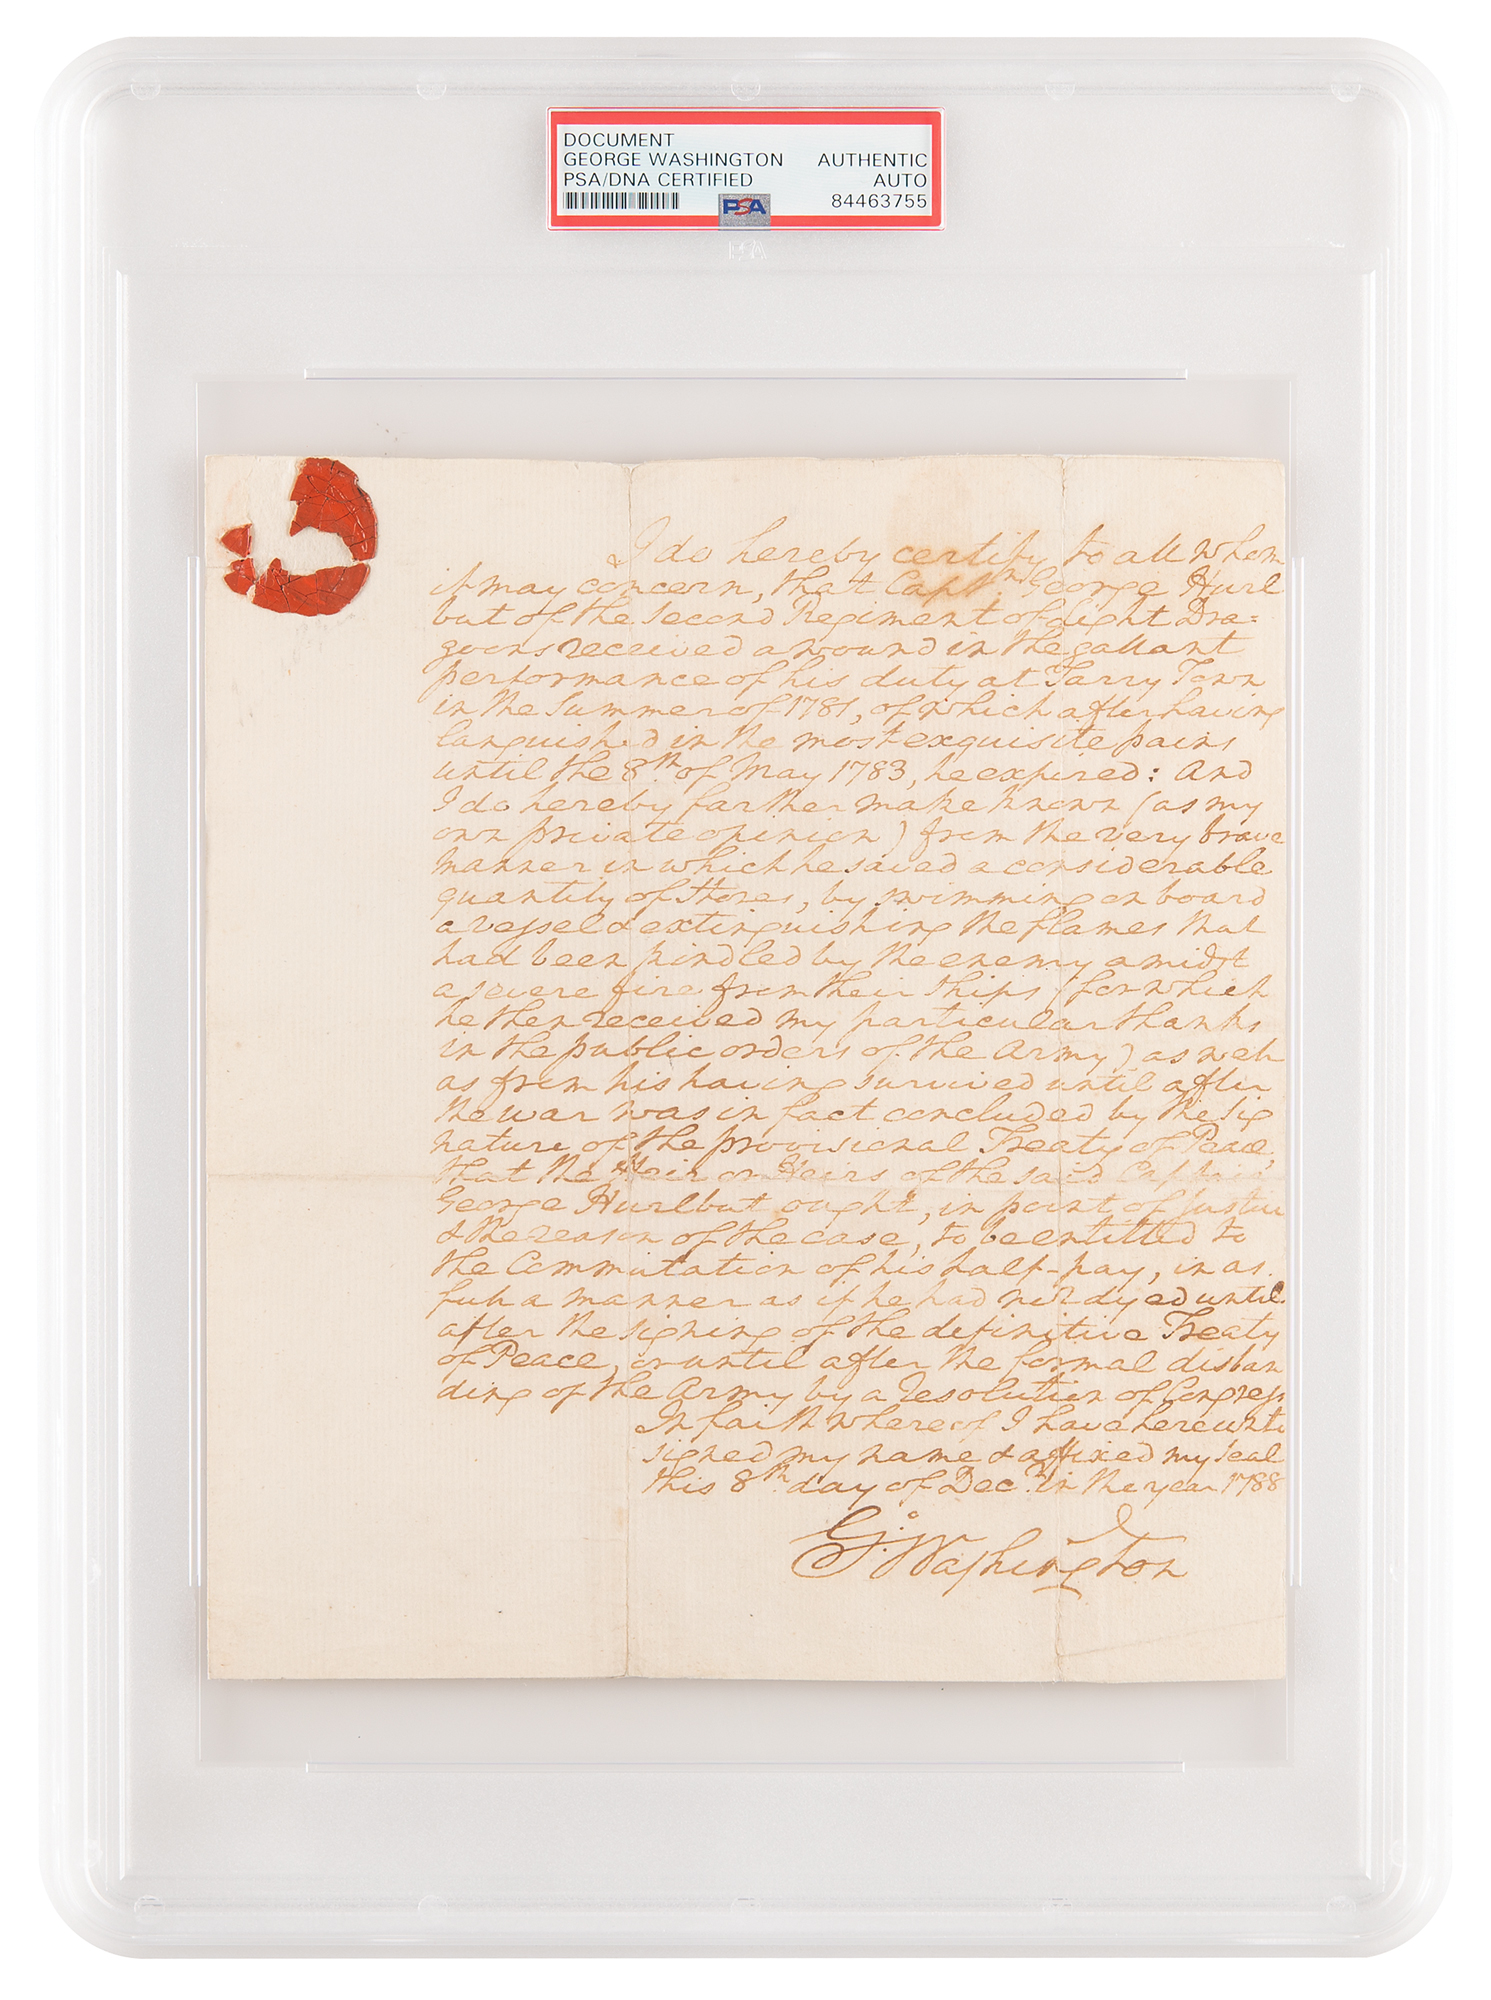 DOCUMENT
GEORGE WASHINGTON AUTHENTIC
PSA/DNA CERTIFIED AUTO
PSA 84463755
PSA
I do hereby certify to all whom
it may concern, that Captn. George Hurl
but of the Second Regiment of Light Dra=
goons received a wound in the gallant
performance of his duty at Tarry Town
in the Summer of 1781, of which after having
languished in the most exquisite pains
until the 8th of May 1783, he expired: And
I do hereby farther make known (as my
own private opinion) from the very brave
manner in which he saved a considerable
quantity of Stores, by swimming on board
a vessel & extinguishing the flames that
had been kindled by the enemy amidst
a severe fire from their Ships (for which
he then received my particular thanks
in the public orders of the Army) as well
as from his having survived until after
the war was in fact concluded by the Sig
nature of the provisional Treaty of Peace,
that the Heir or Heirs of the said Captain
George Hurlbut ought, in point of justice
& the reason of the case, to be entitled to
the Commutation of his half-pay, in as
full a manner as if he had not dyed until
after the signing of the definitive Treaty
of Peace, or until after the formal disban
ding of the Army by a resolution of Congress
In faith whereof I have hereunto
signed my name & affixed my Seal
this 8th day of Decr. in the year 1788
Go: Washington